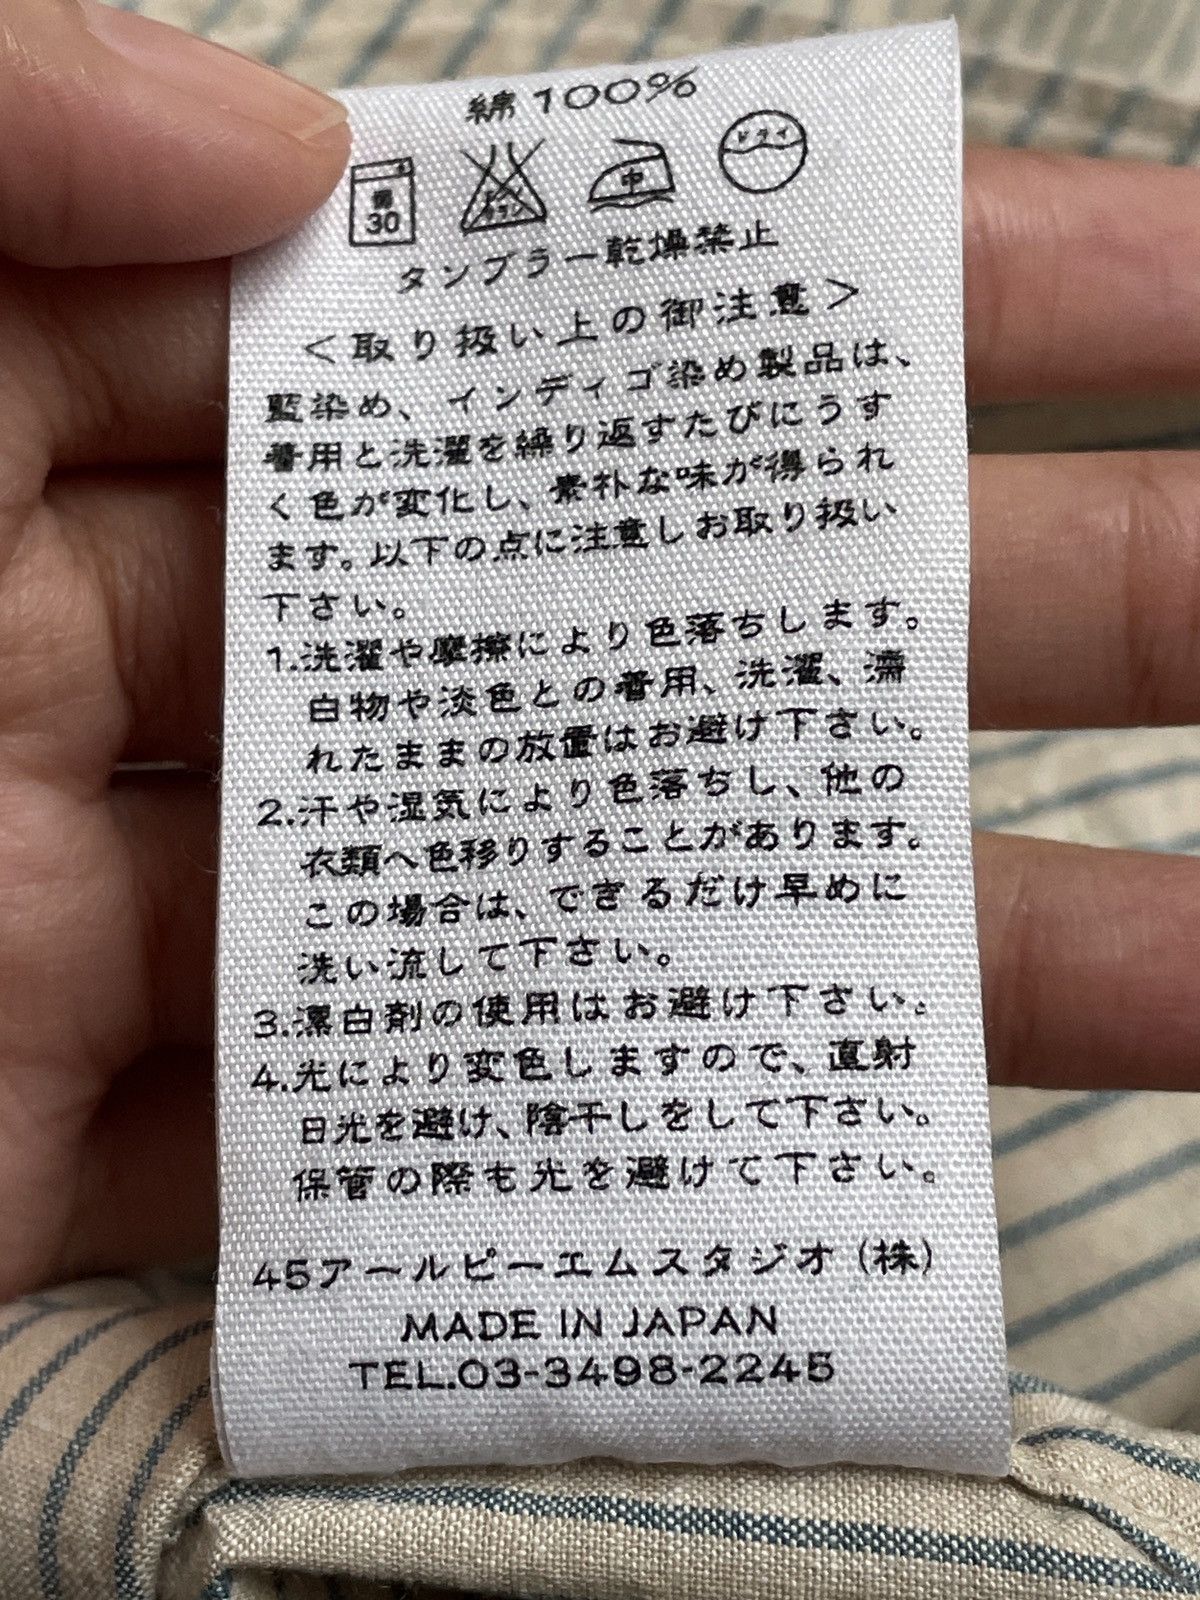 綿100%
弱 30 エンソサラシ 中 ドライ
タンブラー乾燥禁止
＜取り扱い上の御注意＞
藍染め、インディゴ染め製品は、
着用と洗濯を繰り返すたびにうす
く色が変化し、素朴な味が得られ
ます。以下の点に注意しお取り扱い
下さい。
1.洗濯や摩擦により色落ちします。
白物や淡色との着用、洗濯、濡
れたままの放置はお避け下さい。
2.汗や湿気により色落ちし、他の
衣類へ色移りすることがあります。
この場合は、できるだけ早めに
洗い流して下さい。
3.漂白剤の使用はお避け下さい。
4.光により変色しますので、直射
日光を避け、陰干しをして下さい。
保管の際も光を避けて下さい。
45アールピーエムスタジオ（株）
MADE IN JAPAN
TEL.03-3498-2245